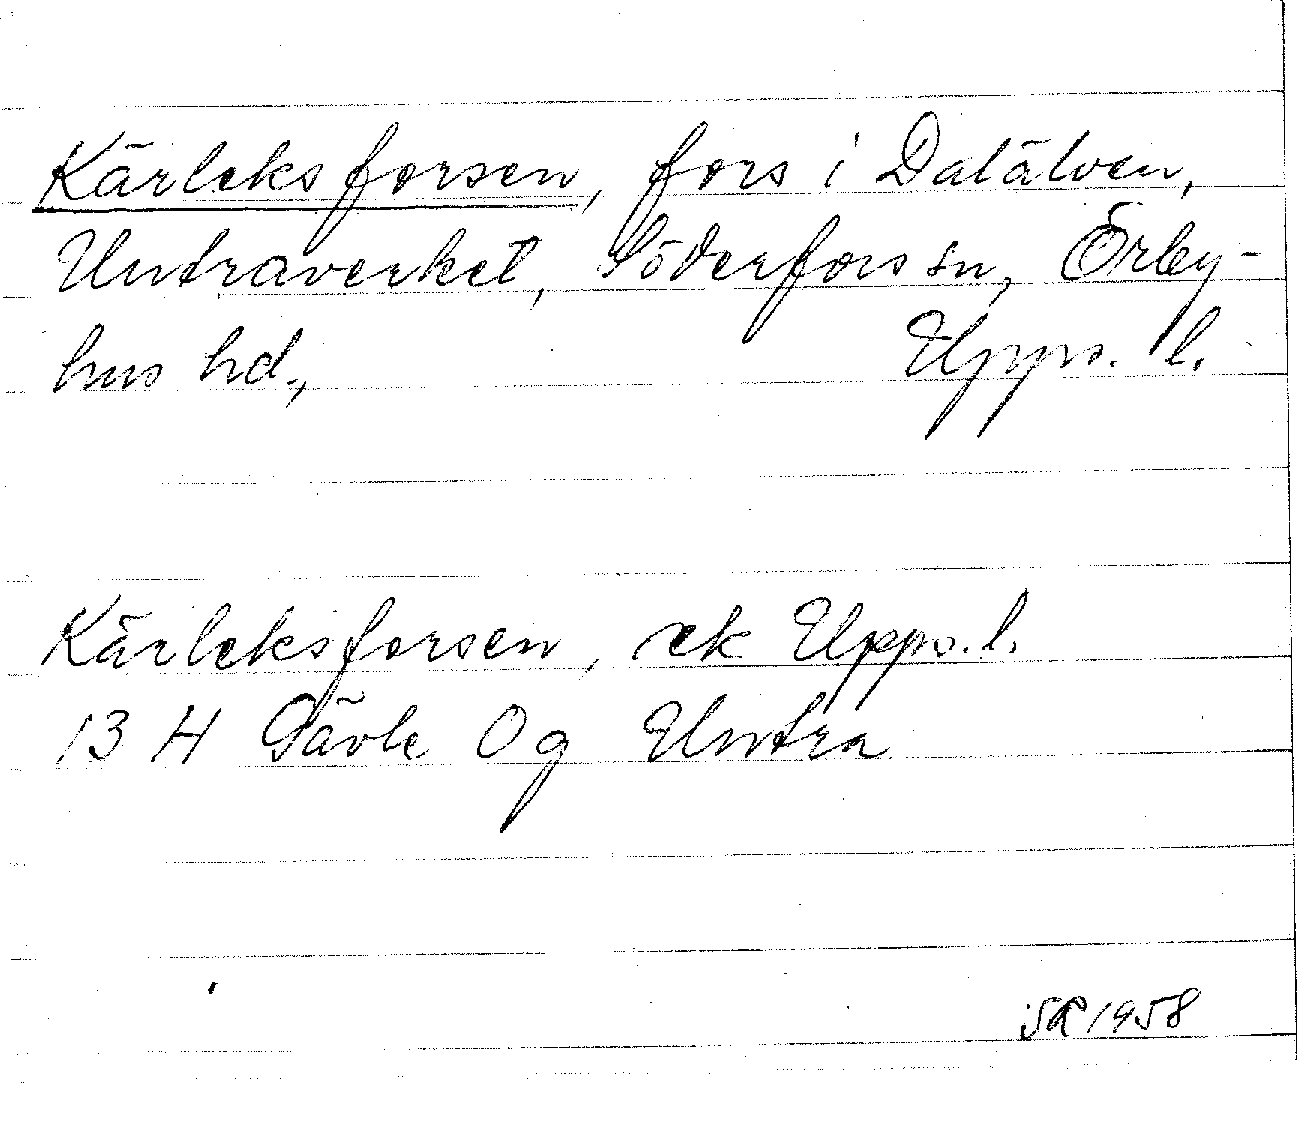 Kärleksforsen, fors i Dalälven,
Untraverket, Söderfors sn, Örby-
hus hd., Upps. l.
Kärleksforsen, ek Upps. l.
13 H Gävle Og Untra
SR 1958